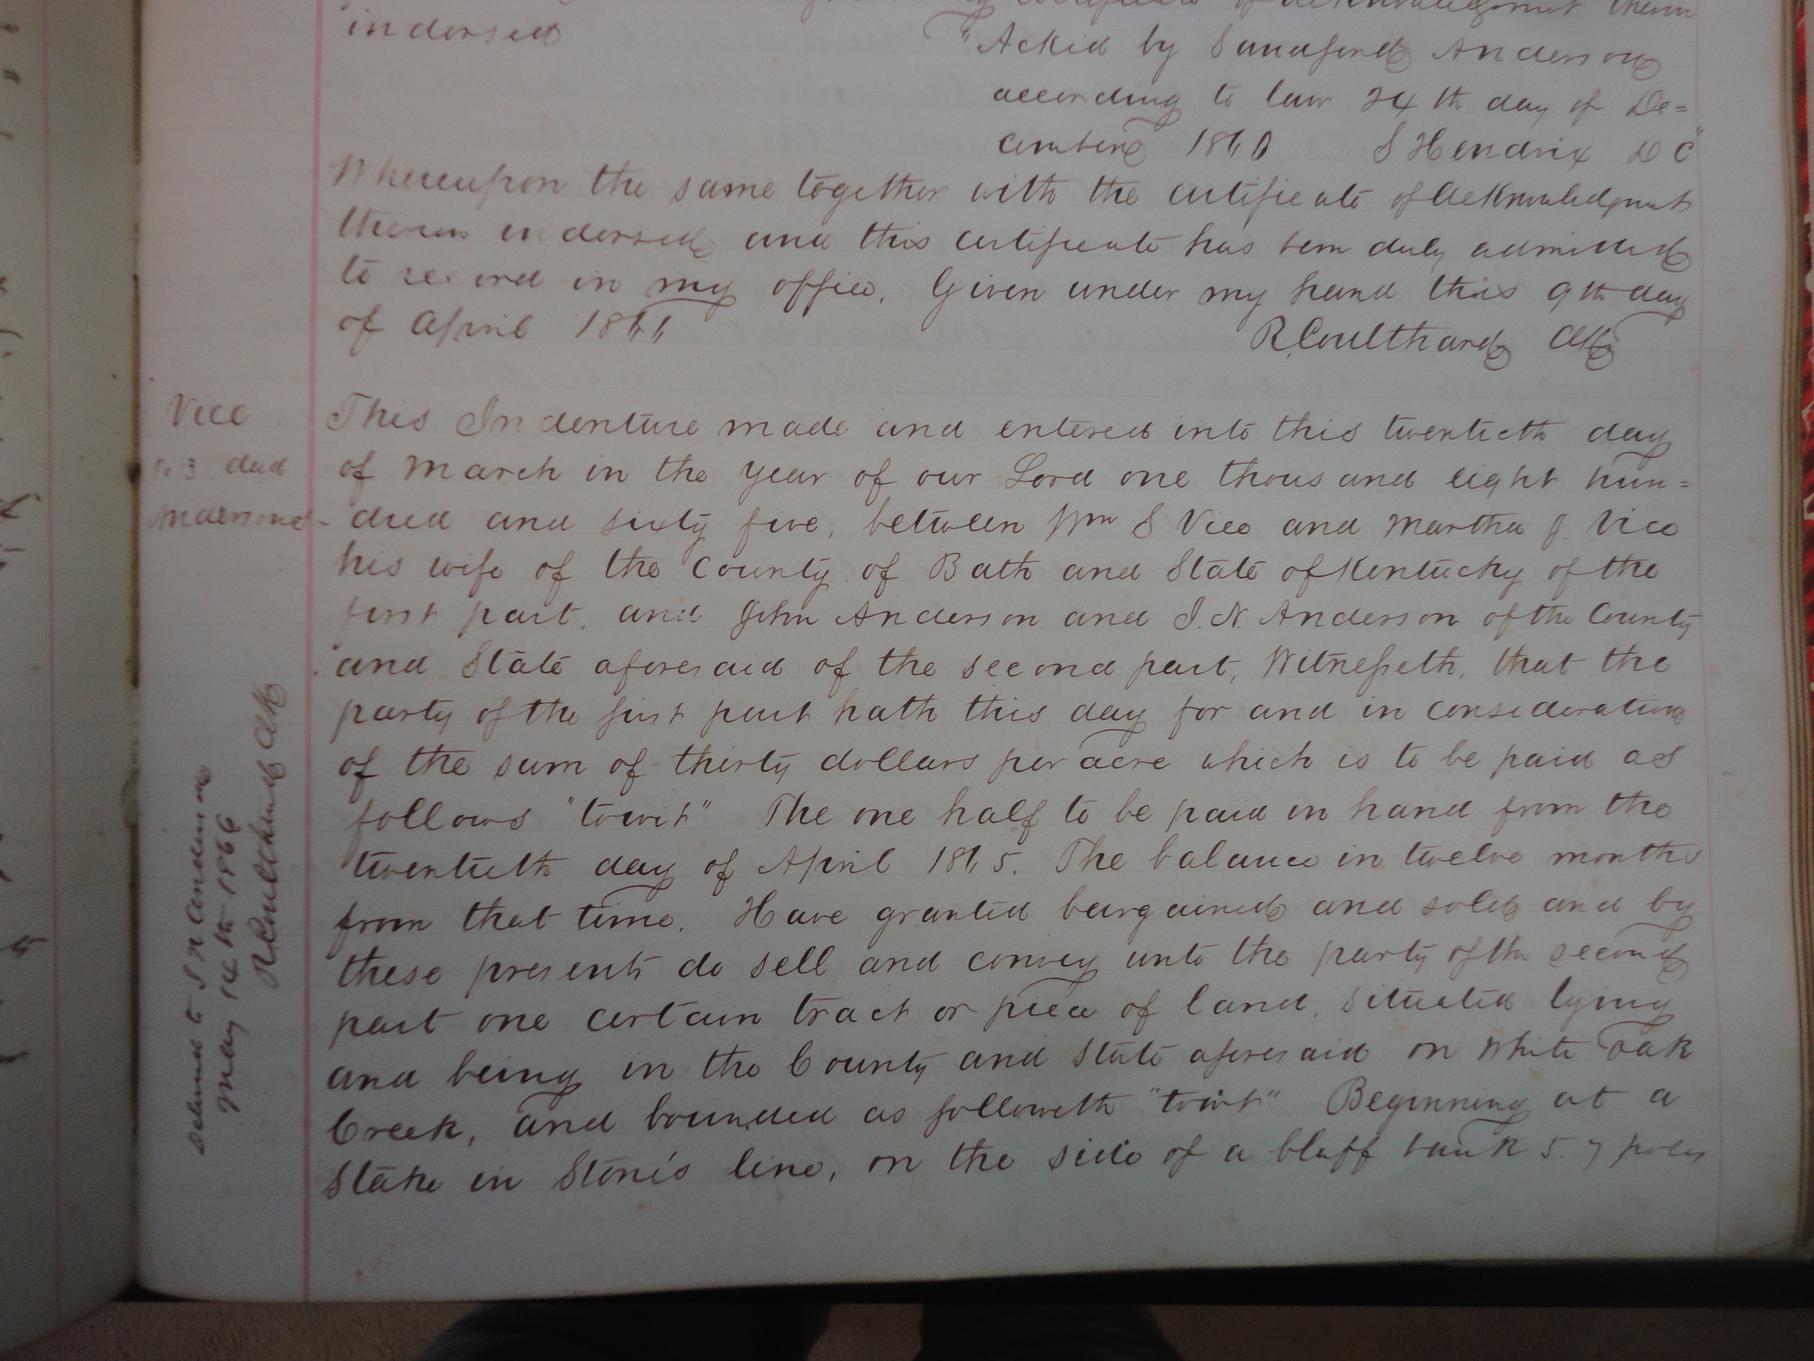 certificate of acknowledgment theron
indorsed
"Ackid by Sandford Anderson
according to law 24th day of De=
cember 1860 S Hendrix D C"
Whereupon the same together with the certificate of acknowledgment
theron indorsed and this certificate has been duly admitted
to record in my office. Given under my hand this 9th day
of April 1866
R. Coulthard Clk
Vice
to } deed
Andersons
This Indenture made and entered into this twentieth day
of March in the year of our Lord one thousand eight hun=
dred and sixty five, between Wm S Vice and Martha J. Vice
his wife of the County of Bath and State of Kentucky of the
first part, and John Anderson and J. N. Anderson of the County
and State aforesaid of the second part, Witnesseth, that the
party of the first part hath this day for and in consideration
of the sum of thirty dollars per acre which is to be paid as
follows "towit" The one half to be paid in hand from the
twentieth day of April 1865. The balance in twelve months
from that time. Have granted bargained and sold and by
these presents do sell and convey unto the party of the second
part one certain tract or piece of land, situated lying
and being in the County and State aforesaid on White oak
Creek, and bounded as followeth "towit" Beginning at a
Stake in Stone's line, on the side of a bluff bank 5.7 poles
Delivered to J N Anderson
May 14th 1866
R Coulthard Clk